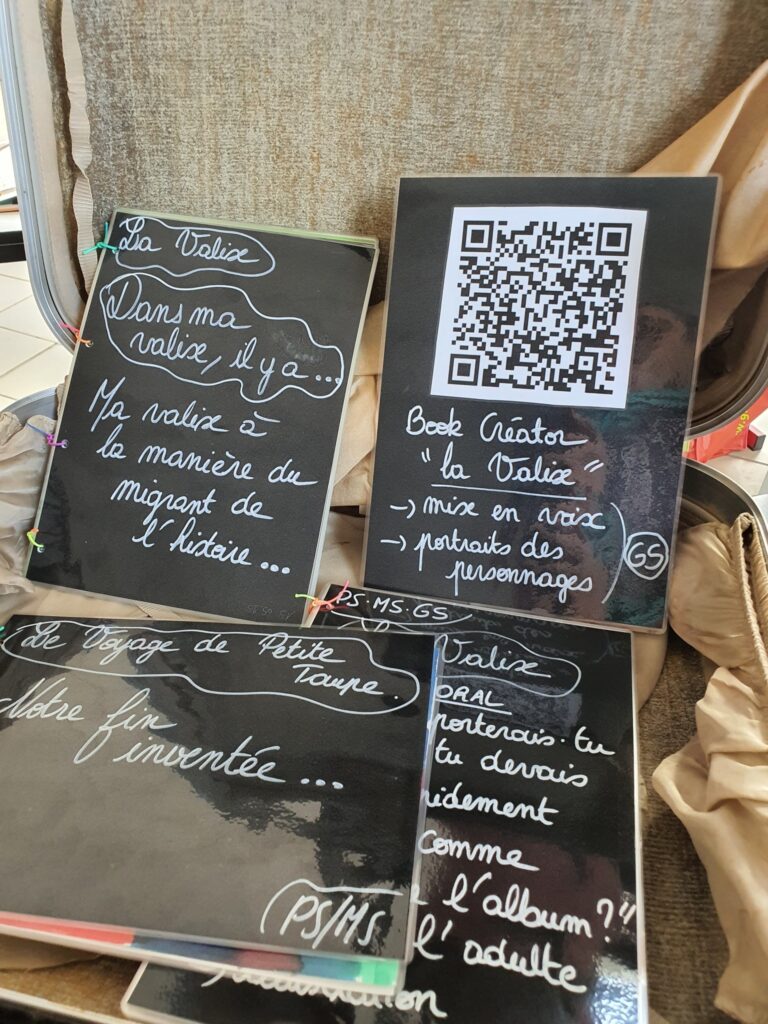 La Valise
Dans ma
valise, il y a ...
Ma valise à
la manière du
migrant de
l'histoire ...
Book Créator
"la Valise"
→ mise en voix
→ portraits des
personnages
GS
Le Voyage de Petite
Taupe.
Notre fin
inventée ...
PS/MS
PS.MS.GS
Valise
ORAL
porterais-tu
tu devais
comme
l'album ?"
l'adulte